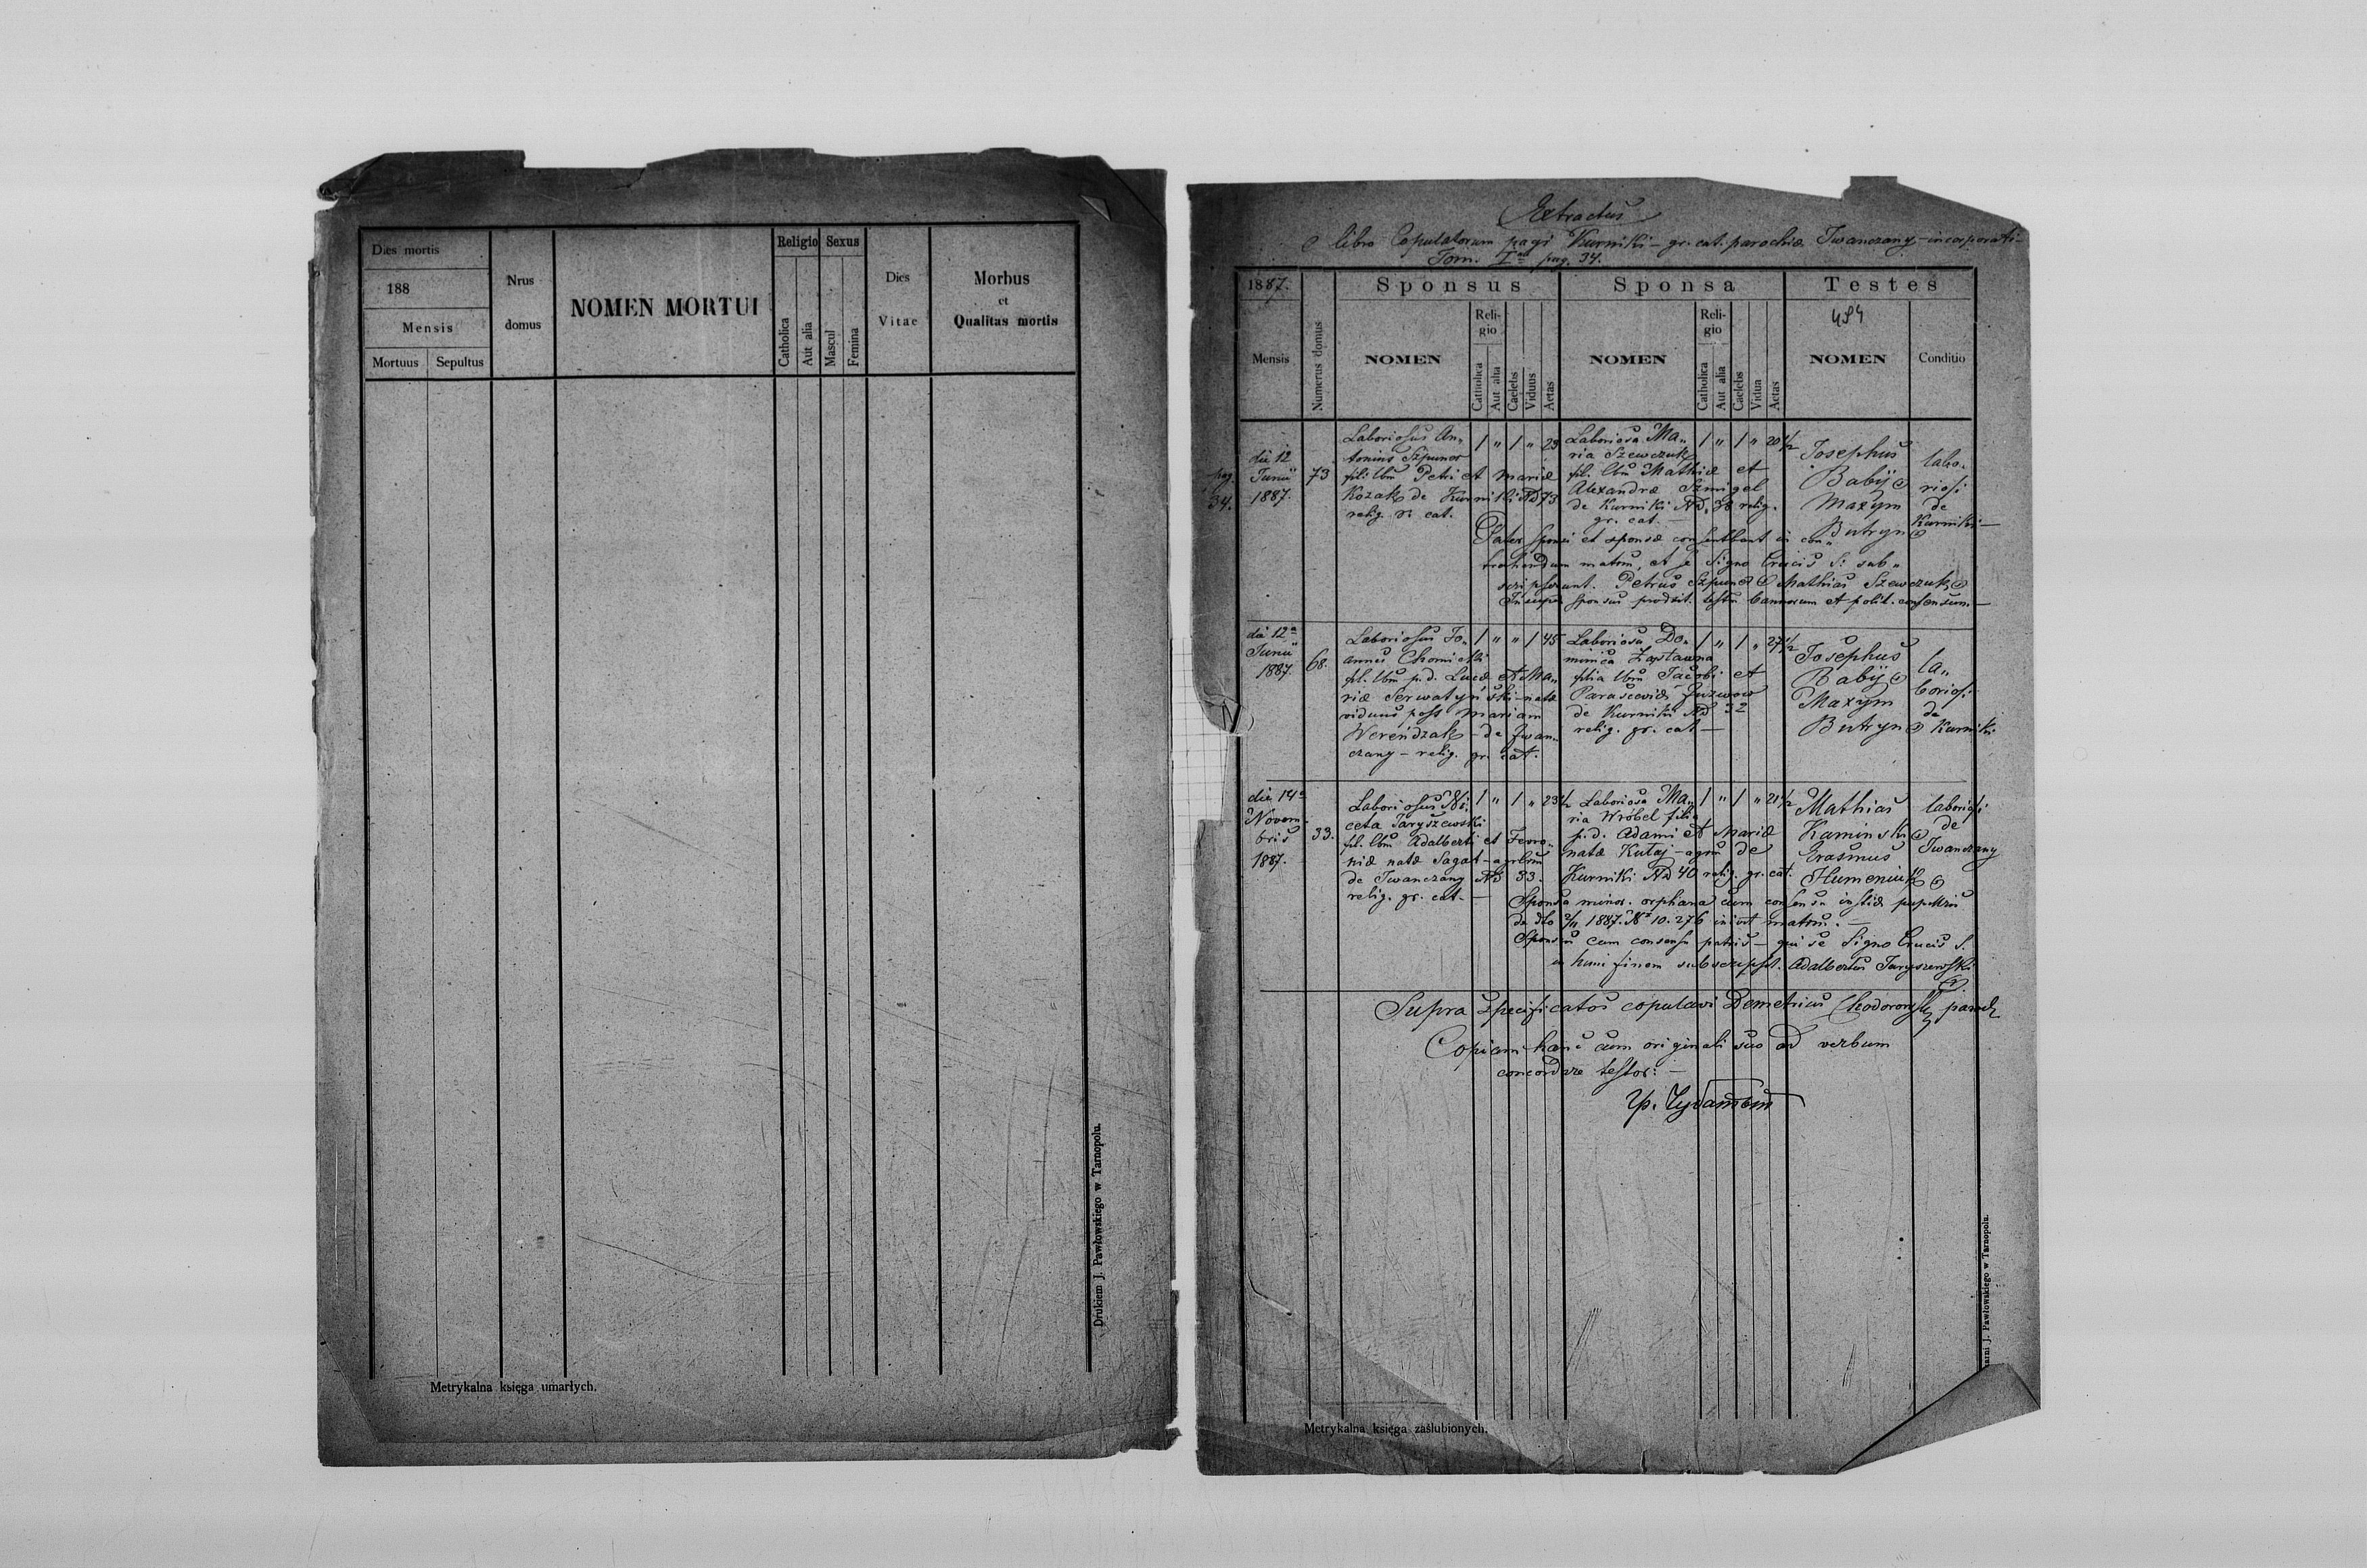 Dies mortis
188
Mensis
Mortuus Sepultus
Nrus
domus
NOMEN MORTUI
Religio Sexus
Catholica
Aut alia
Mascul
Femina
Dies
Vitae
Morbus
et
Qualitas mortis
Drukiem J. Pawłowskiego w Tarnopolu.
Metrykalna księga umarłych.
Extractus
e libro Copulatorum pagi Kurniki – gr. cat. parochiæ Iwanczany – incorporati –
Tom. I pag. 34.
1887.
Mensis
Numerus domus
Sponsus
NOMEN
Reli-
gio
Catholica
Aut alia
Caelebs
Viduus
Aetas
Sponsa
NOMEN
Reli-
gio
Catholica
Aut alia
Caelebs
Vidua
Aetas
Testes
494
NOMEN
Conditio
pag.
34.
die 12
Junii
1887.
73
Laboriosus An„
tonius Szpunar
fil. lbm Petri et Mariæ
Kozak de Kurniki ND 73
relig. r. cat.
1 „ 1 „ 23
Laboriosa Ma„
ria Szewczuk
fil. lbm Mathiæ et
Alexandræ Szmigel
de Kurniki ND. 38 relig.
gr. cat. –
1 „ 1 „ 20 1/2
Josephus
Babij
Maxym
Butryn
labo„
riosi
de
Kurniki –
Pater sponsi et sponsæ consentiunt in con„
trahendum matrim, et se signo Crucis S: sub„
scripserunt. Petrus Szpunar Mathias Szewczuk
Insuper sponsus produxit testim bannorum et polit. consensum. –
die 12a
Junii
1887.
68.
Laboriosus Jo„
annes Chomicki
fil. lbm p. d. Lucæ et Ma„
riæ Serwatyński – natæ
viduus post Mariam
Werendzak – de Iwan„
czany – relig. gr. cat.
1 „ „ 1 45
Laboriosa Do„
minica Zastawna
filia lbm Jacobi et
Parascevidæ Juzwow
de Kurniki ND 32
relig. gr. cat –
1 „ 1 „ 27 1/2
Josephus
Babij
Maxym
Butryn
la„
boriosi
de
Kurniki
die 14a
Novem„
bris
1887.
33.
Laboriosus Ni„
ceta Jaryszewski
fil. lbm Adalberti et Fevro„
niæ natæ Sagat –
de Iwanczany ND 33.
relig. gr. cat. –
1 „ 1 „ 23 1/2
Laboriosa Ma„
ria Wróbel filia
p. d. Adami et Mariæ
natæ Kułaj – de
Kurniki ND 40 relig. gr. cat.
1 „ 1 „ 21 1/2
Mathias
Kaminski
Erasmus
Humeniuk
laboriosi
de
Iwanczany
Sponsa minor. orphana cum consensu
1887. No 10.276 matrim. –
Sponsus cum consensu patris – qui se signo Crucis S.
in hunc finem subscripsit. Adalbertus Jaryszewski
Supra specificatos copulavi Demetrius paroch
Copiam hanc cum originali suo ad verbum
concordare testor: –
Metrykalna księga zaślubionych.
J. Pawłowskiego w Tarnopolu.